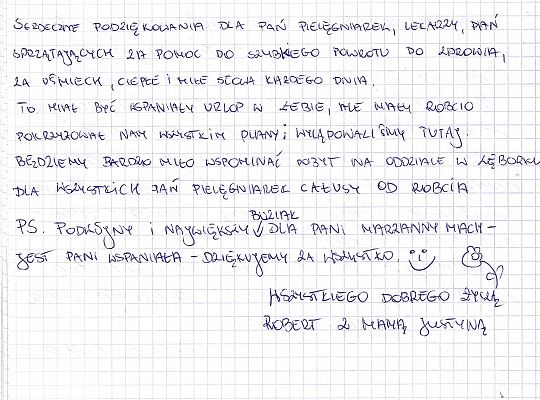 SERDECZNE PODZIĘKOWANIA DLA PAŃ PIELĘGNIAREK, LEKARZY, PAŃ
SPRZĄTAJĄCYCH ZA POMOC DO SZYBKIEGO POWROTU DO ZDROWIA,
ZA UŚMIECH, CIEPŁE I MIŁE SŁOWA KAŻDEGO DNIA.
TO MIAŁ BYĆ WSPANIAŁY URLOP W ŁEBIE, ALE MAŁY ROBCIO
POKRZYŻOWAŁ NAM WSZYSTKIM PLANY I WYLĄDOWALIŚMY TUTAJ.
BĘDZIEMY BARDZO MIŁO WSPOMINAĆ POBYT NA ODDZIALE W LĘBORKU
DLA WSZYSTKICH PAŃ PIELĘGNIAREK CAŁUSY OD ROBCIA
BUZIAK
PS. PODWÓJNY I NAJWIĘKSZY DLA PANI MARZANNY MACH –
JEST PANI WSPANIAŁA – DZIĘKUJEMY ZA WSZYSTKO.
WSZYSTKIEGO DOBREGO ŻYCZĄ
ROBERT Z MAMĄ JUSTYNĄ